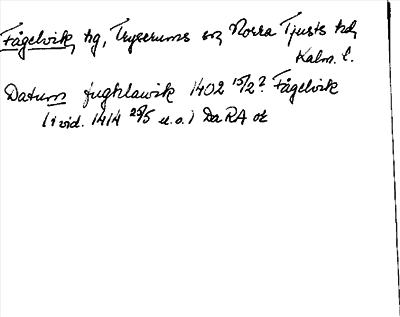 Fågelvik, hg, Tryserums sn, Norra Tjusts hd,
Kalm. l.
Datum fughlawik 1402 15/2? Fågelvik
(i vid. 1414 25/5 u.o.) Da RA or